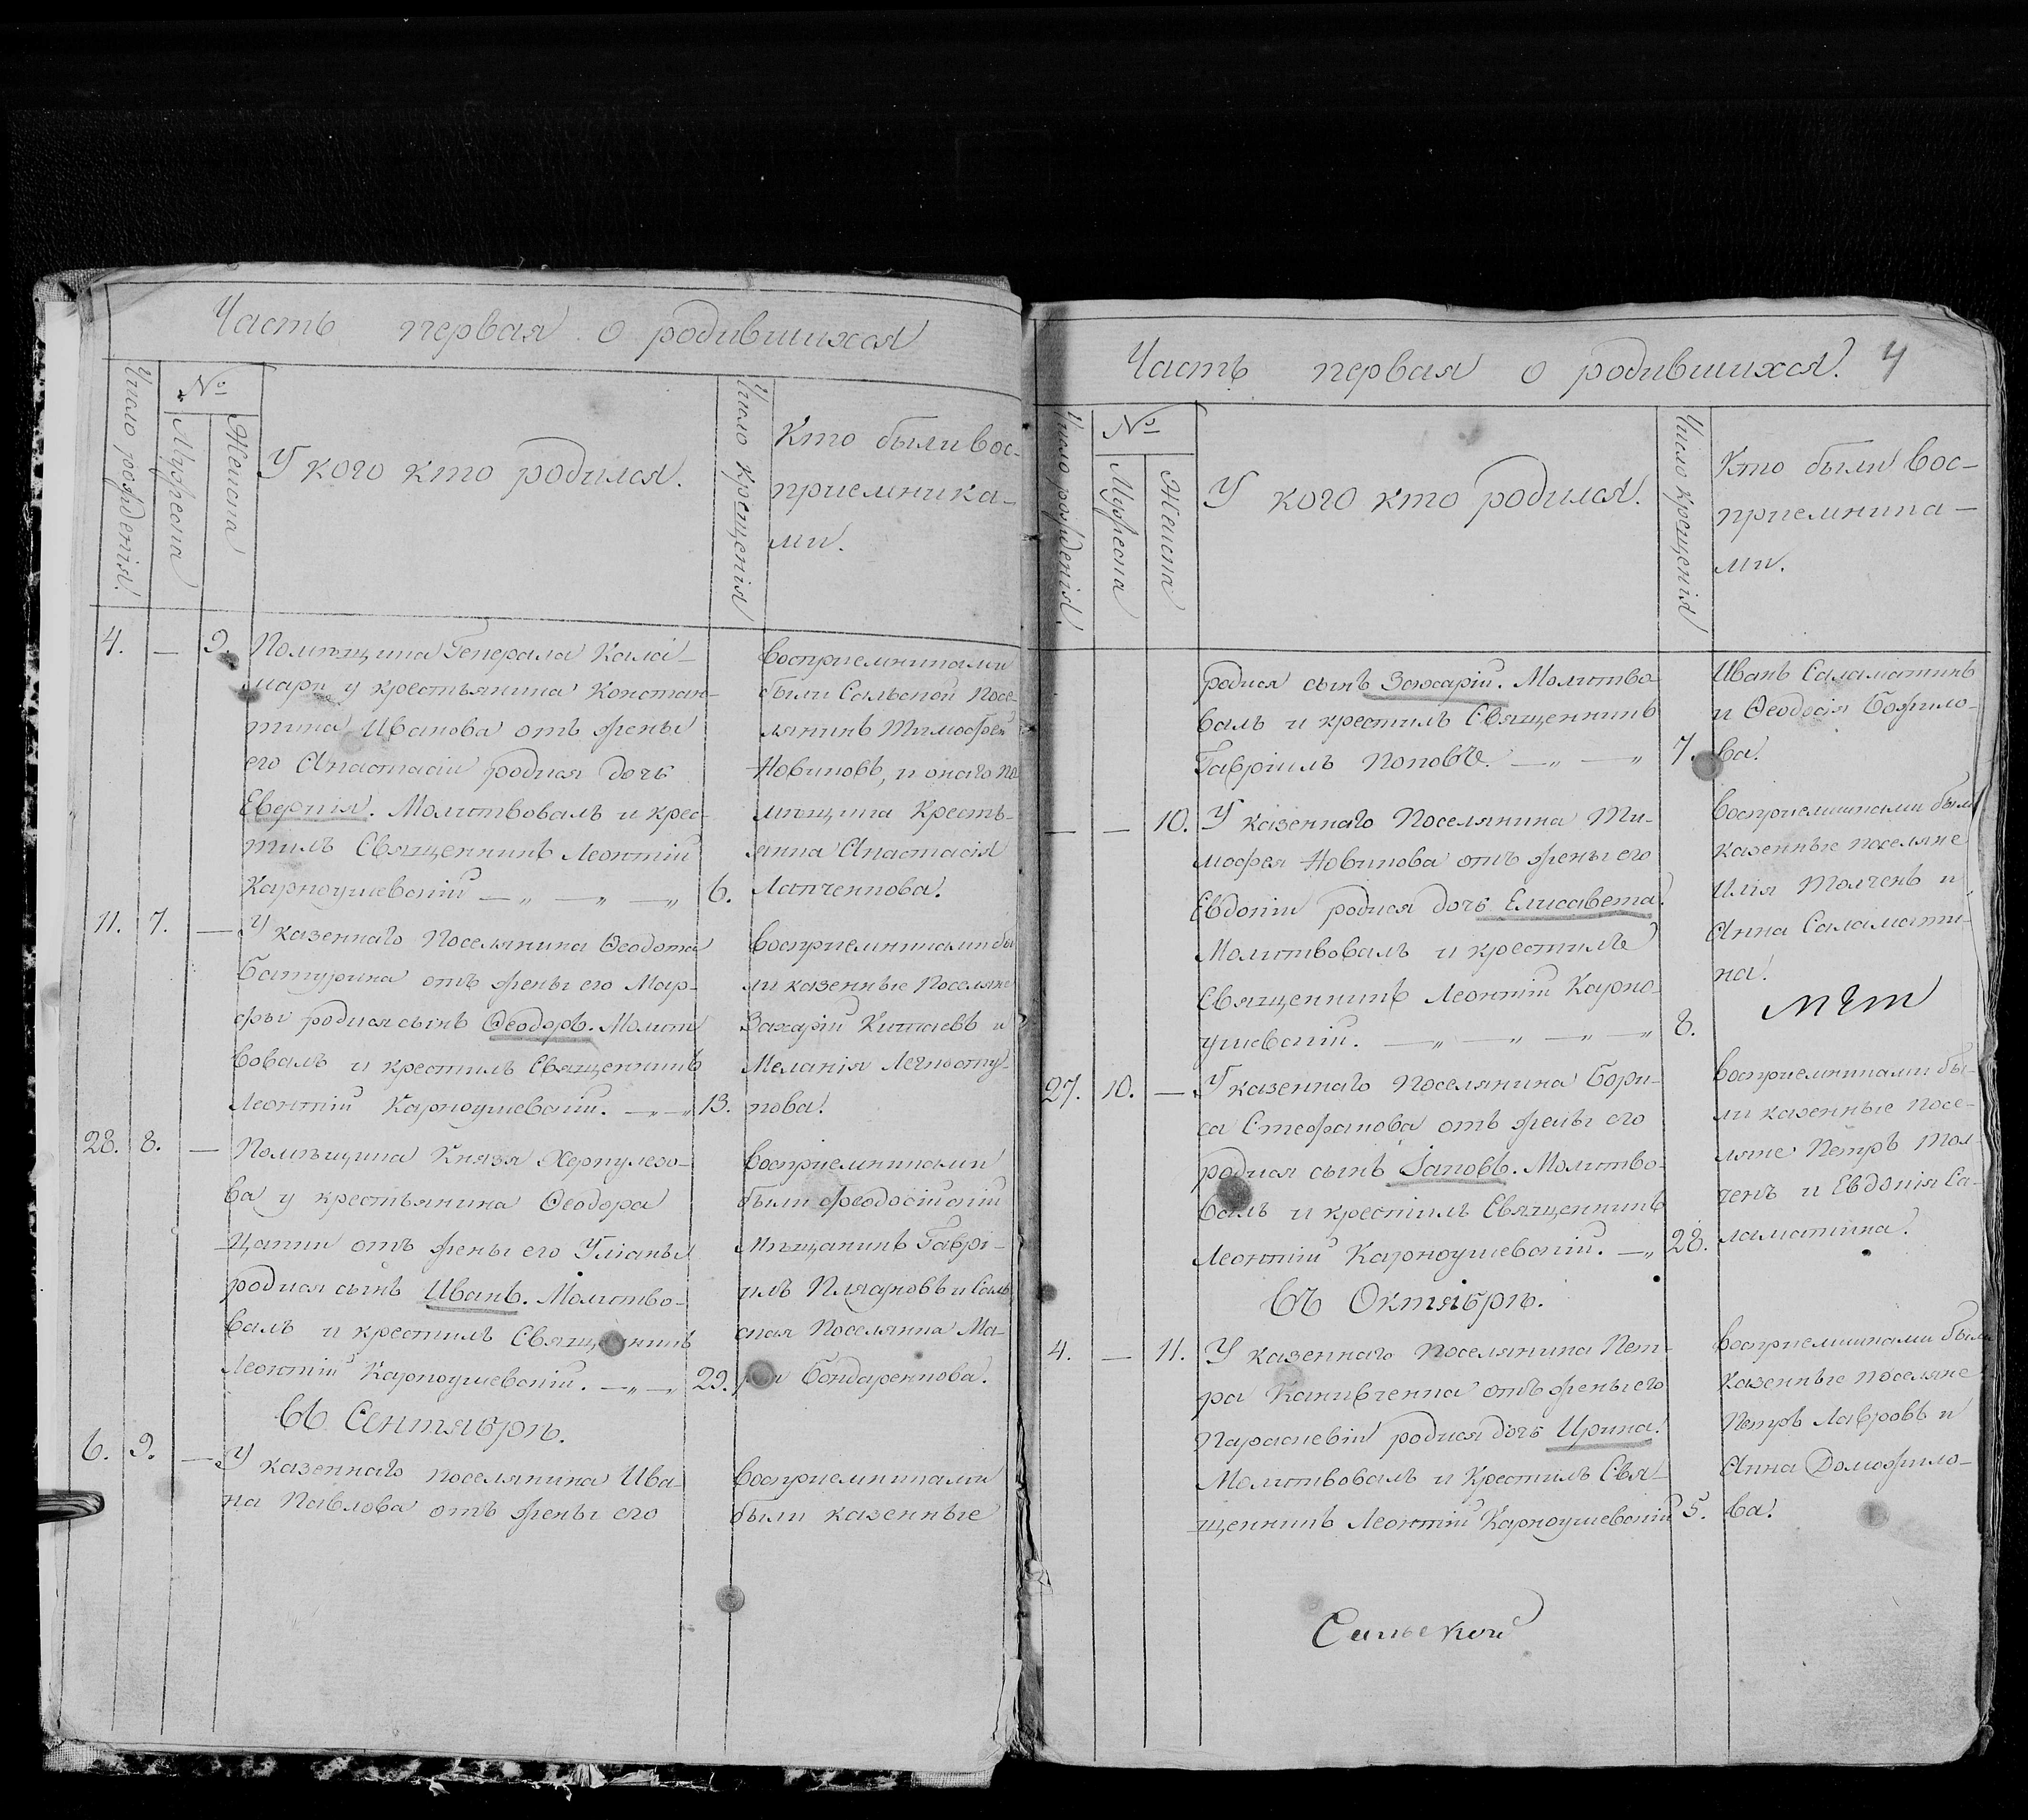 Часть первая о родившихся
Число рожденія.
№
Мужеска
Женска
У кого кто родился.
Число крещенія
Кто были вос-
приемника-
ми.
4. — 9. Помѣщика Генерала Кала-
у крестьянина Констан-
тина Иванова отъ жены
его Анастасіи родися дочь
Евфнія. Молитвовалъ и крес-
тилъ Священникъ Леонтій
Карноушевскій —„ —„ —„ 6.
восприемниками
были Сальской посе-
лянинъ Тимофей
Новиковъ, и онаго по-
мѣщика Кресть-
янка Анастасія
Лапченкова.
11. 7. — У казеннаго Поселянина Ѳеодота
Батурина отъ жены его Мар-
фы родися сынъ Ѳеодоръ. Молит
вовалъ и крестилъ Священникъ
Леонтій Карноушевскій. —„—„ 13.
восприемниками бы
ли казенные Поселяне
Захарій Киппаевъ и
Меланія
пова.
28. 8. — Помѣщика Князя Херхулезо-
ва у крестьянина Ѳеодора
Цапки отъ жены его Уліаны
родися сынъ Иванъ. Молитво-
валъ и крестилъ Священникъ
Леонтій Карноушевскій. —„—„ 29.
восприемниками
были феодосійскій
Мѣщанинъ Гаврі-
илъ и Саль
ская Поселянка Ма-
рія Бондаренкова.
въ Сентябрѣ.
6. 9. — У казеннаго поселянина Ива-
на Павлова отъ жены его
восприемниками
были казенные
Часть первая о родившихся. 4
Число рожденія.
№
Мужеска
Женска
У кого кто родился.
Число крещенія
Кто были вос-
приемника-
ми.
родися сынъ Захарій. Молитво
валъ и крестилъ Священникъ
Гавріилъ Поповъ. —„ —„ 7.
Иванъ Саламатинъ
и Ѳеодосія Божило-
ва.
— — 10. У казеннаго Поселянина Ти-
мофея Новикова отъ жены его
Евдокіи родися дочь Елисавета.
Молитвовалъ и крестилъ
Священникъ Леонтій Карно-
ушевскій. —„ —„ —„ —„ 8.
восприемниками были
казенные поселяне
Илія Толченъ и
Анна Саламати-
на.
27. 10. — У казеннаго Поселянина Бори-
са Стефанова отъ жены его
родися сынъ Іаковъ. Молитво-
валъ и крестилъ Священникъ
Леонтій Карноушевскій. —„ 28.
восприемниками бы-
ли казенные посе-
ляне Петръ Тол-
ченъ и Евдокія Са-
ламатина.
въ Октябрѣ.
4. — 11. У казеннаго Поселянина Пет-
ра Канивченка отъ жены его
Параскевіи родися дочь Ирина.
Молитвовалъ и Крестилъ Свя-
щенникъ Леонтій Карноушевскій 5.
восприемниками были
казенные поселяне
Петръ Лавровъ и
Анна Доможило-
ва.
Сальской